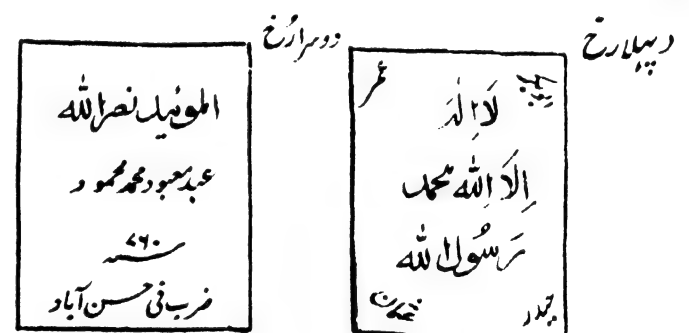 پہلا رخ
عمر
لَا اِلٰہَ
اِلَّا اللہ محمد
رَسُوْل اللہ
حیدر
عثمان
دوسرا رُخ
الموئید نصر اللہ
عبد معبود محمد محمود
سنہ ۷۶۰
ضرب فی حسن آباد